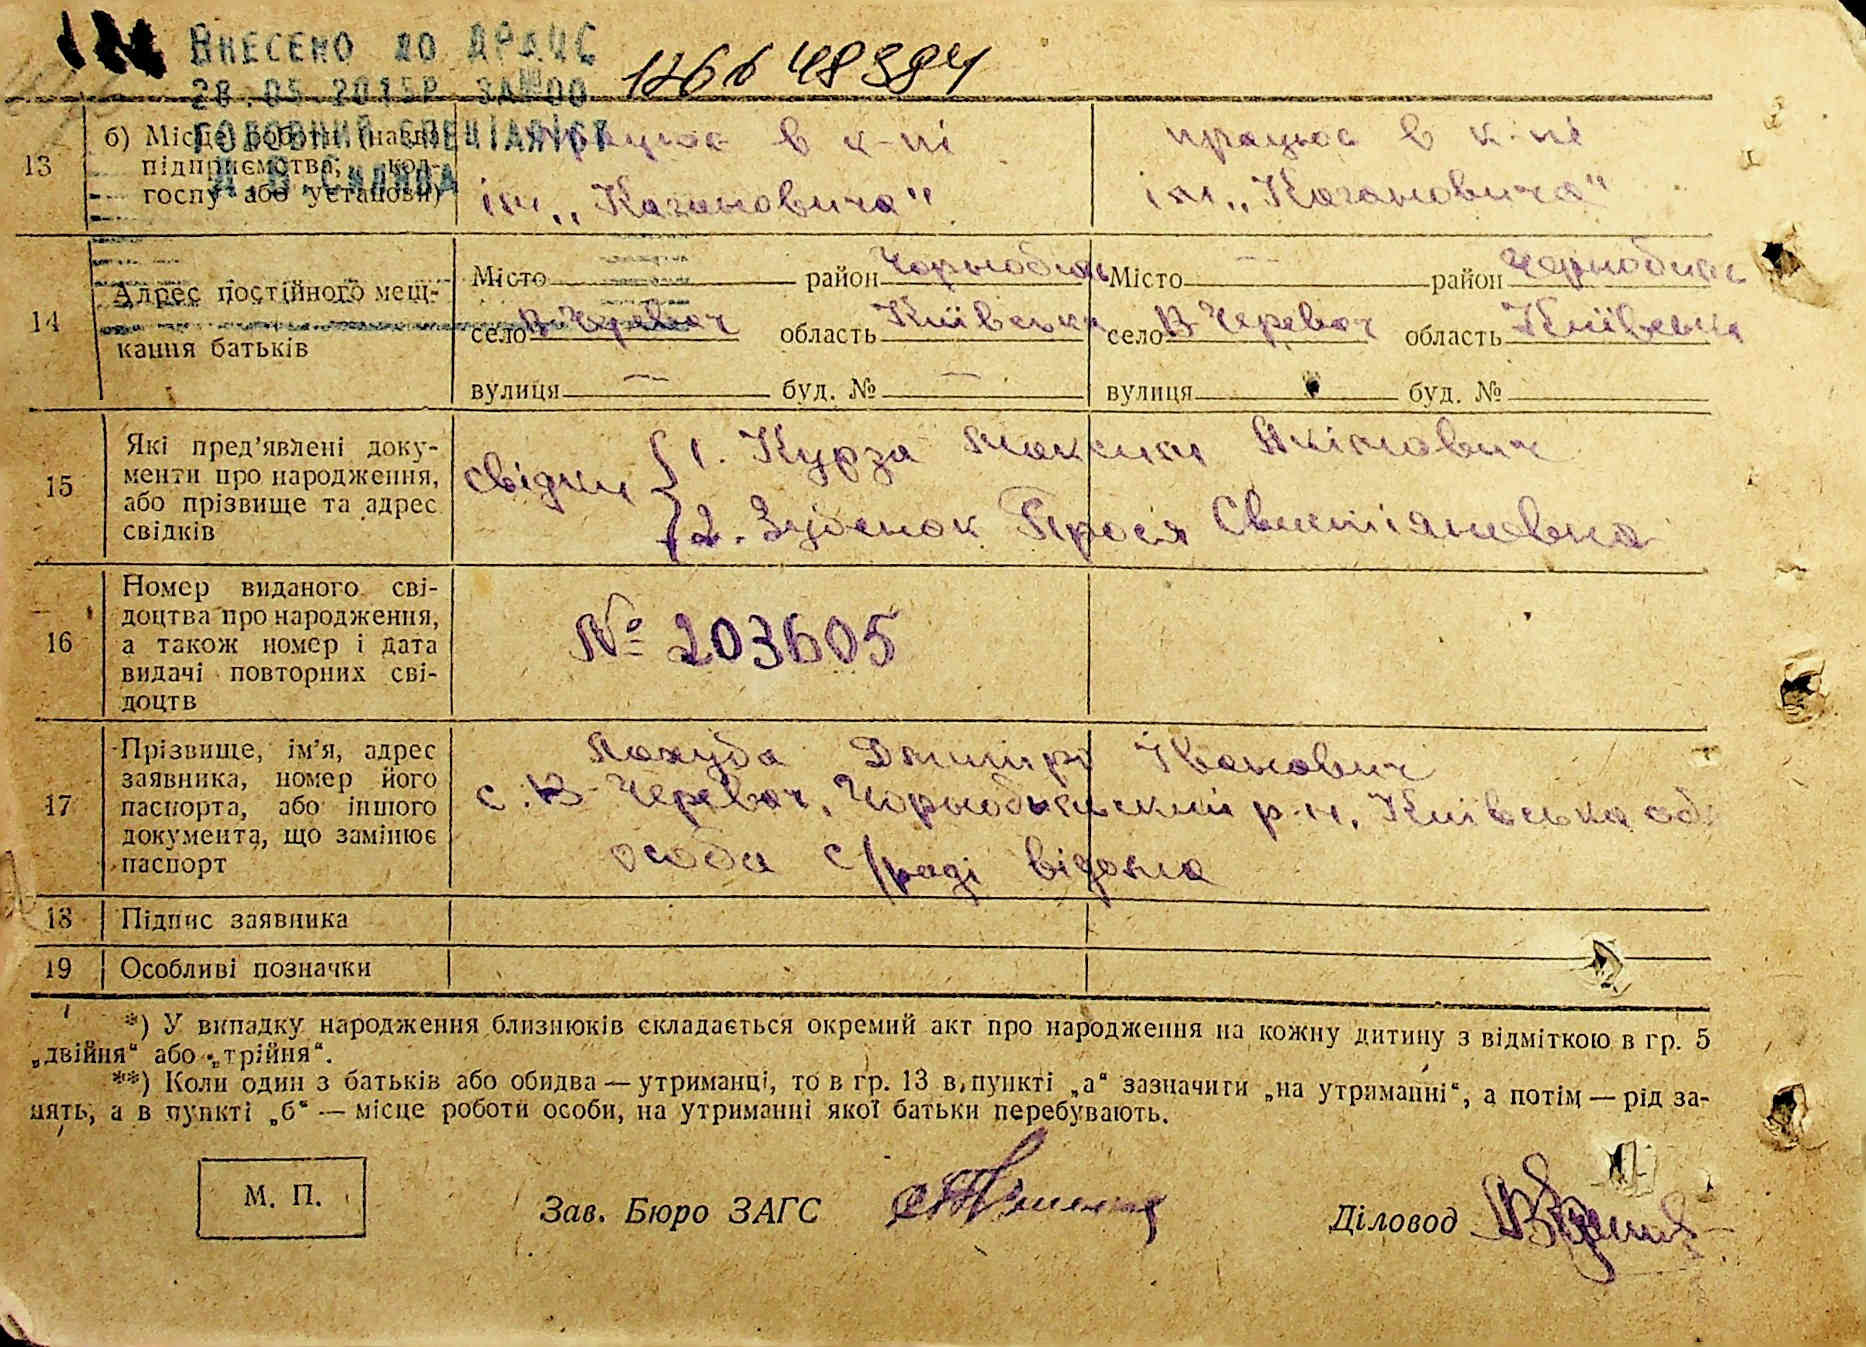 Внесено до ДРАЦС
28.05.2015р. за №00
12664 8384
Головний спеціаліст
13 б) Місце роботи (назва підприємства, кол-
госпу або установи)
працює в к-пі працює в к-пі
ім. „Кагановича" ім. „Кагановича"
14 Адрес постійного меш-
кання батьків
Місто район Чорнобиль Місто — район Чернобиль
село В-Черевач область Київська село В-Черевач область Київська
вулиця — буд. № — вулиця буд. №
15 Які пред'явлені доку-
менти про народження,
або прізвище та адрес
свідків
свідки 1. Курза Максим Якімович
2. Зубенок Прося
16 Номер виданого сві-
доцтва про народження,
а також номер і дата
видачі повторних сві-
доцтв
№ 203605
17 Прізвище, ім'я, адрес
заявника, номер його
паспорта, або іншого
документа, що замінює
паспорт
Дмитро Іванович
с. В-Черевач, Чорнобильський р-н, Київська об
особа с/раді відома
18 Підпис заявника
19 Особливі позначки
*) У випадку народження близнюків складається окремий акт про народження на кожну дитину з відміткою в гр. 5
„двійня" або „трійня".
**) Коли один з батьків або обидва — утриманці, то в гр. 13 в пункті „а" зазначити „на утриманні", а потім — рід за-
нять, а в пункті „б" — місце роботи особи, на утриманні якої батьки перебувають.
М. П.
Зав. Бюро ЗАГС
Діловод